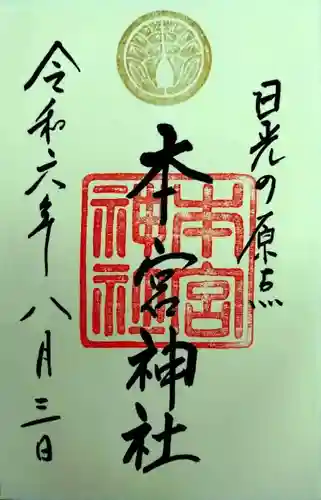 日光の原点
本宮神社
本宮
神社
令和六年八月三日